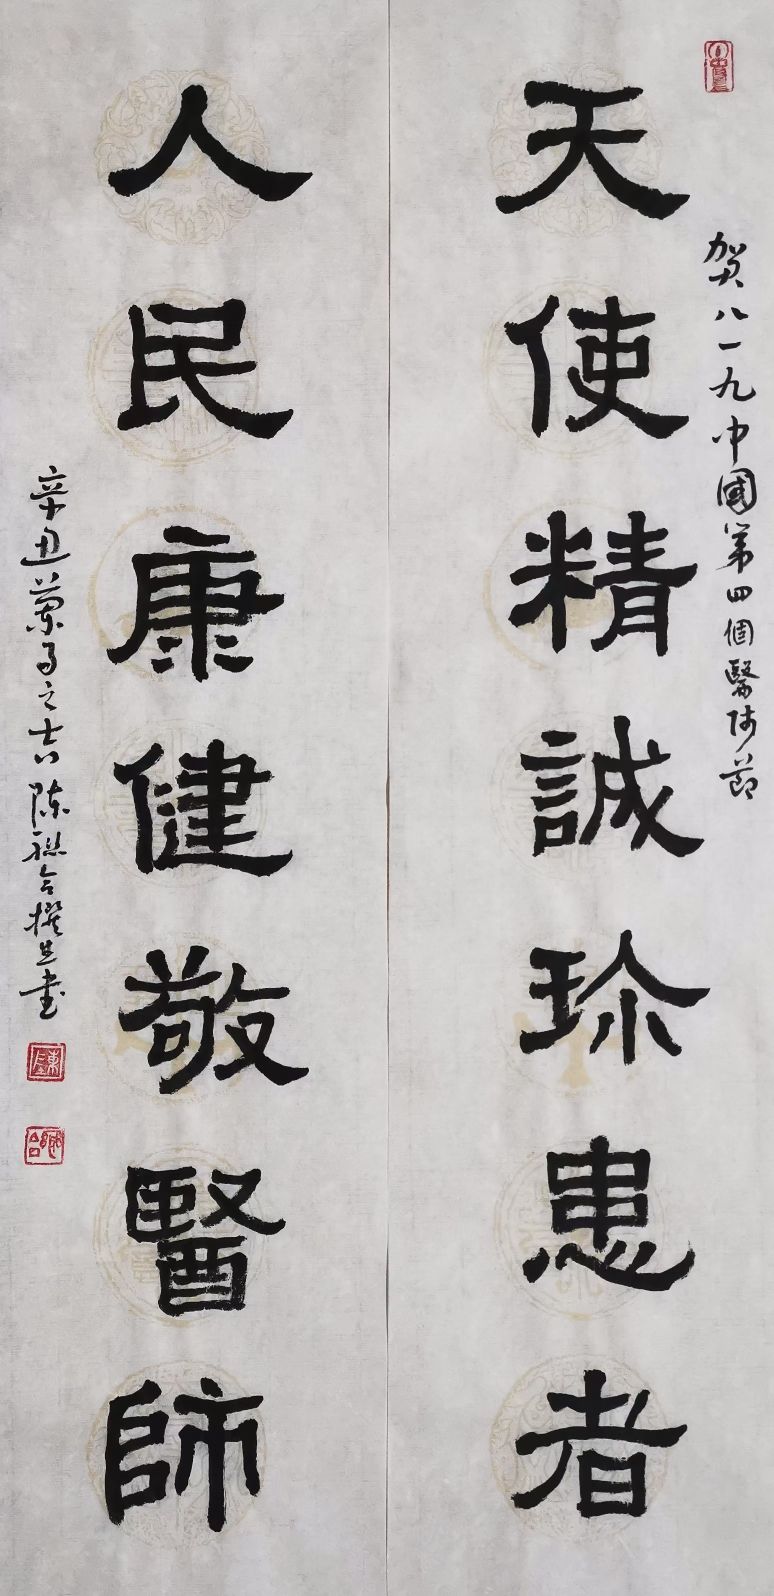 贺八一九中國第四個醫师節
天使精誠珍患者
人民康健敬醫師
辛丑蘭月之吉陈聯合撰并書